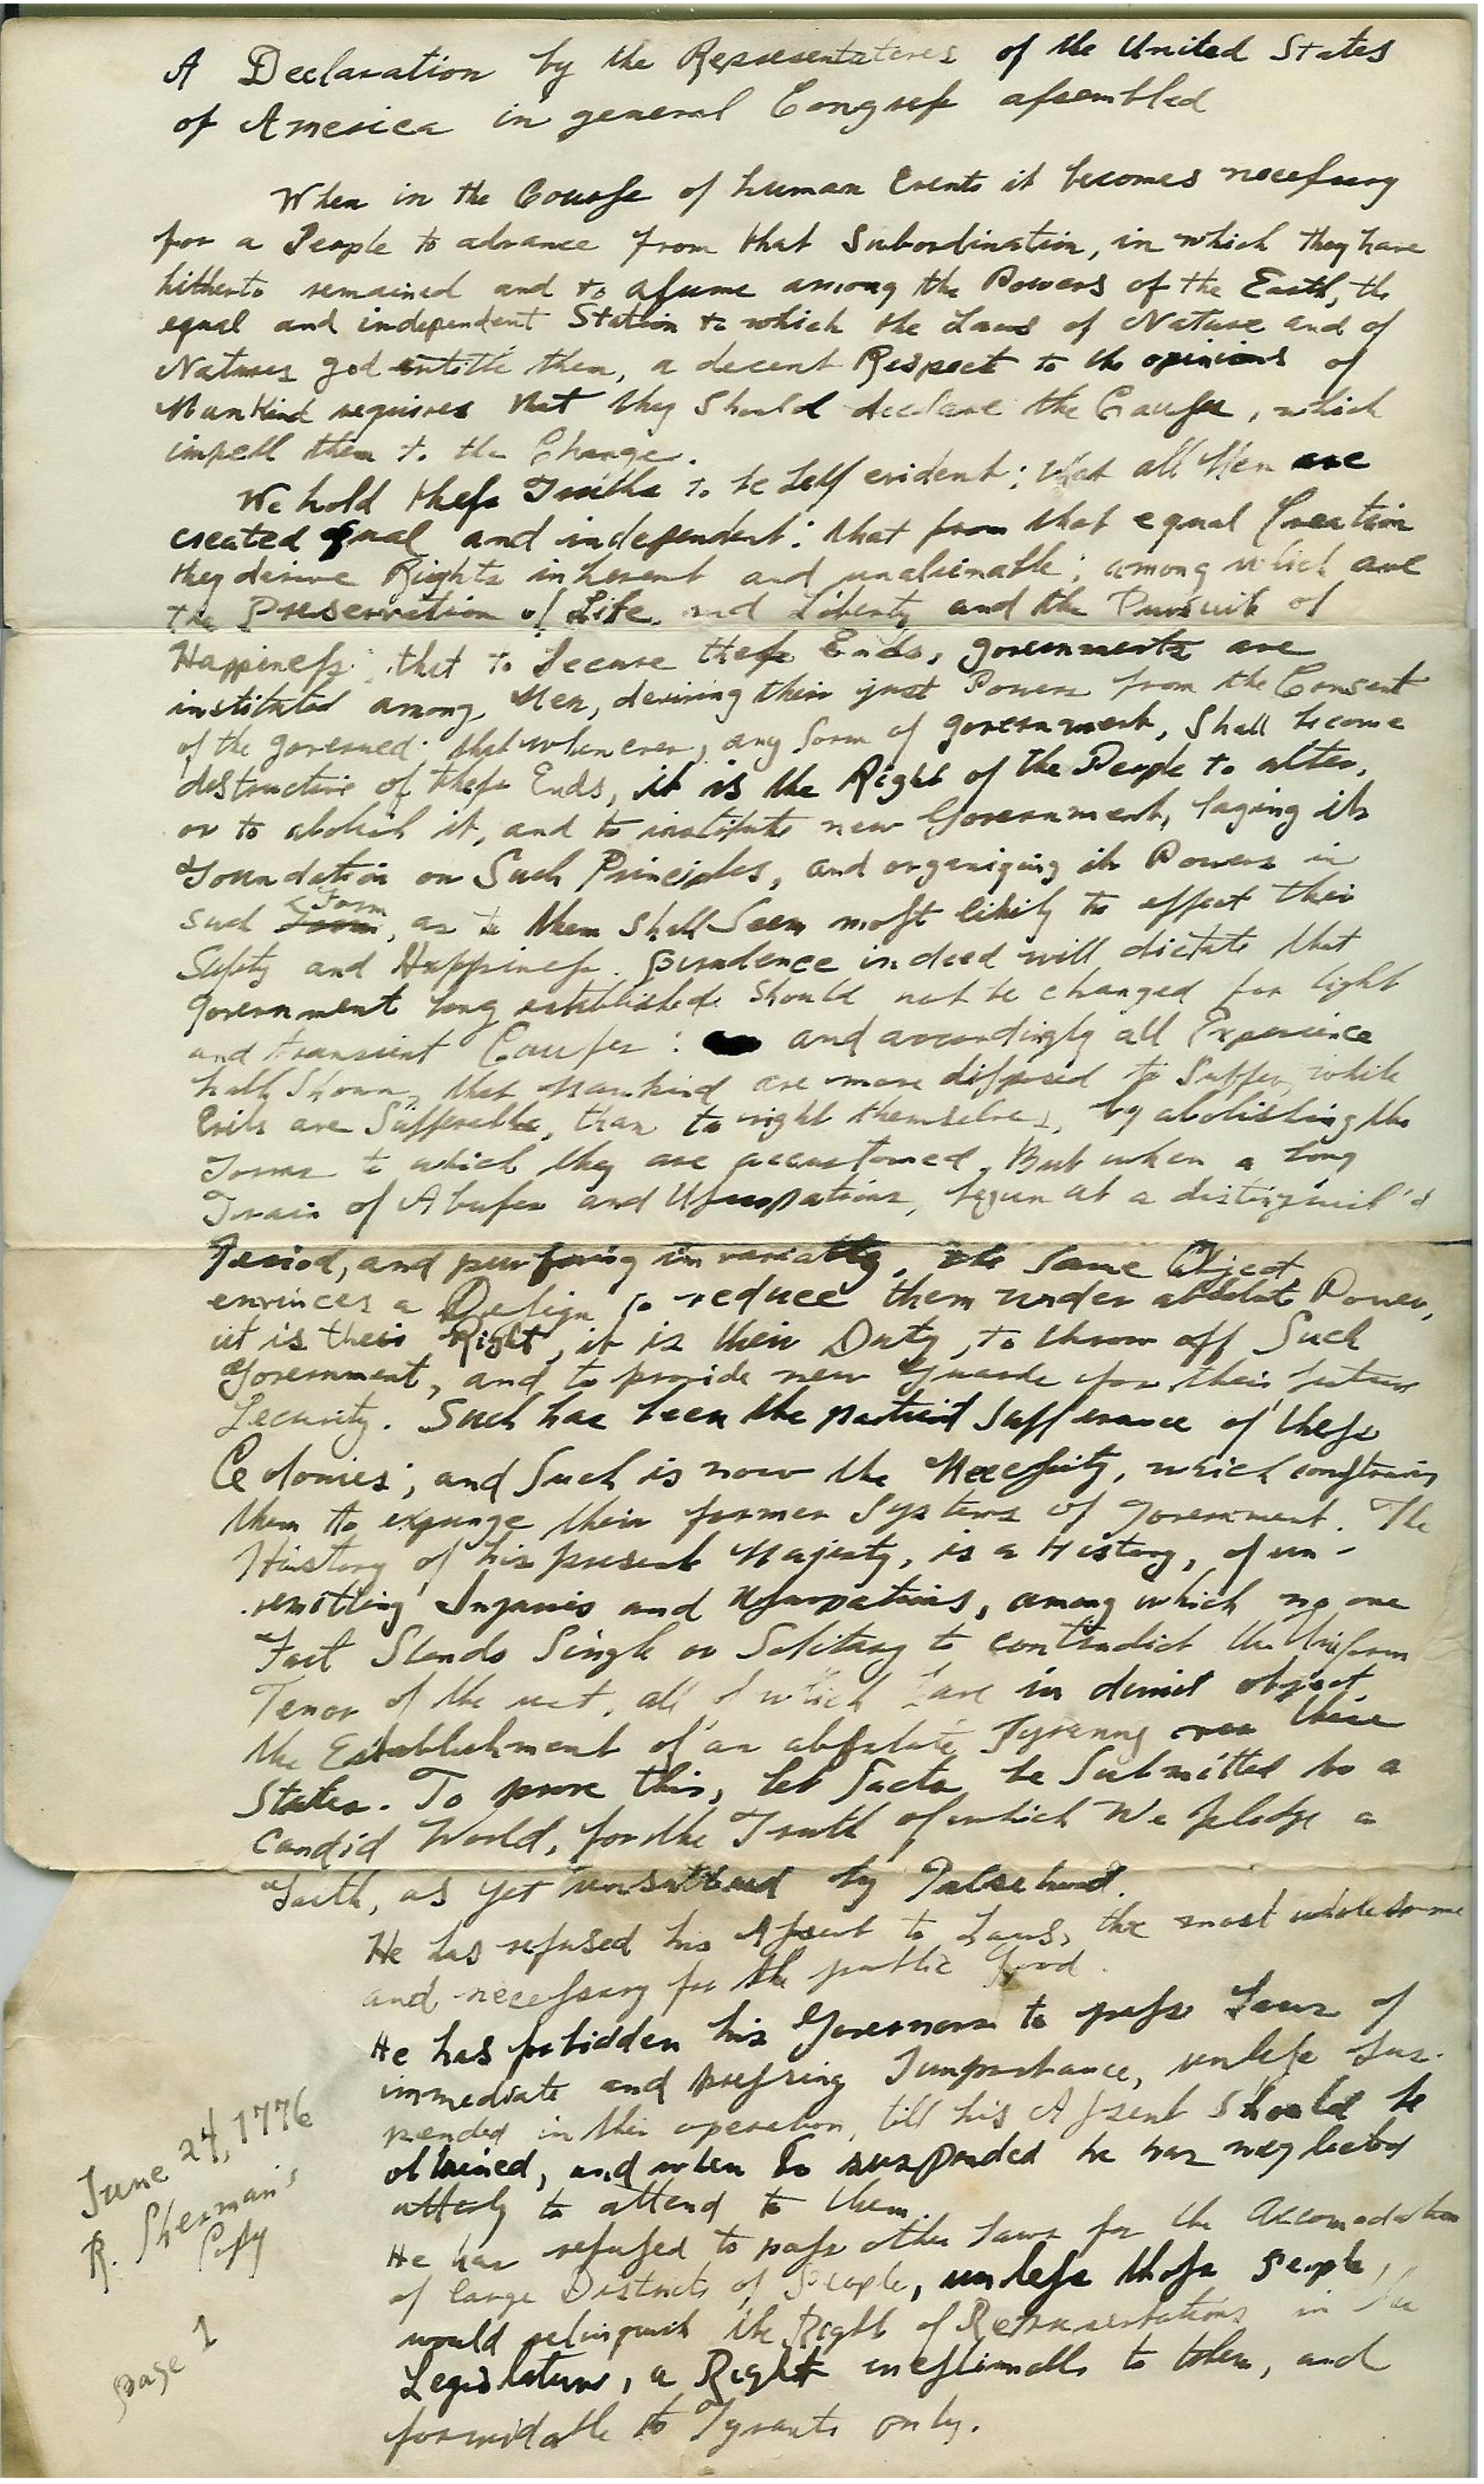 A Declaration by the Representatives of the United States
of America in general Congress assembled
When in the Course of human Events it becomes necessary
for a People to advance from that Subordination, in which they have
hitherto remained and to assume among the Powers of the Earth, the
equal and independent Station to which the Laws of Nature and of
Natures god entitle them, a decent Respect to the opinions of
Mankind requires that they Should declare the Causes, which
impell them to the Change.
We hold these Truths to be Self evident; that all Men are
created equal and independent; that from that equal Creation
they derive Rights inherent and unalienable; among which are
the Preservation of Life, and Liberty and the Pursuit of
Happiness; that to Secure these Ends, governments are
instituted among Men, deriving their just Powers from the Consent
of the governed; that whenever, any form of government, Shall become
destructive of these Ends, it is the Right of the People to alter,
or to abolish it, and to institute new Government, laying its
Foundation on Such Principles, and organizing its Powers in
Form
such Form, as to them Shall Seem most likely to effect their
Safety and Happiness. prudence indeed will dictate that
Government long established should not be changed for light
and transient Causes: and accordingly all Experience
hath Shown, that mankind are more disposed to Suffer, while
Evils are Sufferable, than to right themselves, by abolishing the
Forms to which they are accustomed. But when a long
Train of Abuses and Usurpations, begun at a distinguish'd
Period, and pursuing invariably, the Same Object
envinces a Design to reduce them under absolute Power,
it is their Right, it is their Duty, to throw off Such
Government, and to provide new Guards for their future
Security. Such has been the patient Sufferance of these
Colonies; and Such is now the Necessity, which constrains
them to expunge their former Systems of Government. The
History of his present Majesty, is a History, of un-
remitting Injuries and Usurpations, among which no one
Fact Stands Single or Solitary to contradict the Uniform
Tenor of the rest, all of which have in direct object,
the Establishment of an absolute Tyranny over these
States. To prove this, let Facts be Submitted to a
Candid World, for the Truth of which We pledge a
Faith, as yet unsullied by Falsehood.
He has refused his Assent to Laws, the most wholesome
and necessary for the public Good.
He has forbidden his Governors to pass Laws of
immediate and pressing Importance, unless sus-
pended in their operation, till his Assent should be
obtained, and when so suspended he has neglected
utterly to attend to them.
He has refused to pass other Laws for the accomodation
of large Districts of People, unless those People,
would relinquish the Right of Representations in the
Legislature, a Right inestimable to them, and
formidable to Tyrants only.
June 24, 1776
R. Sherman's
Copy
page 1